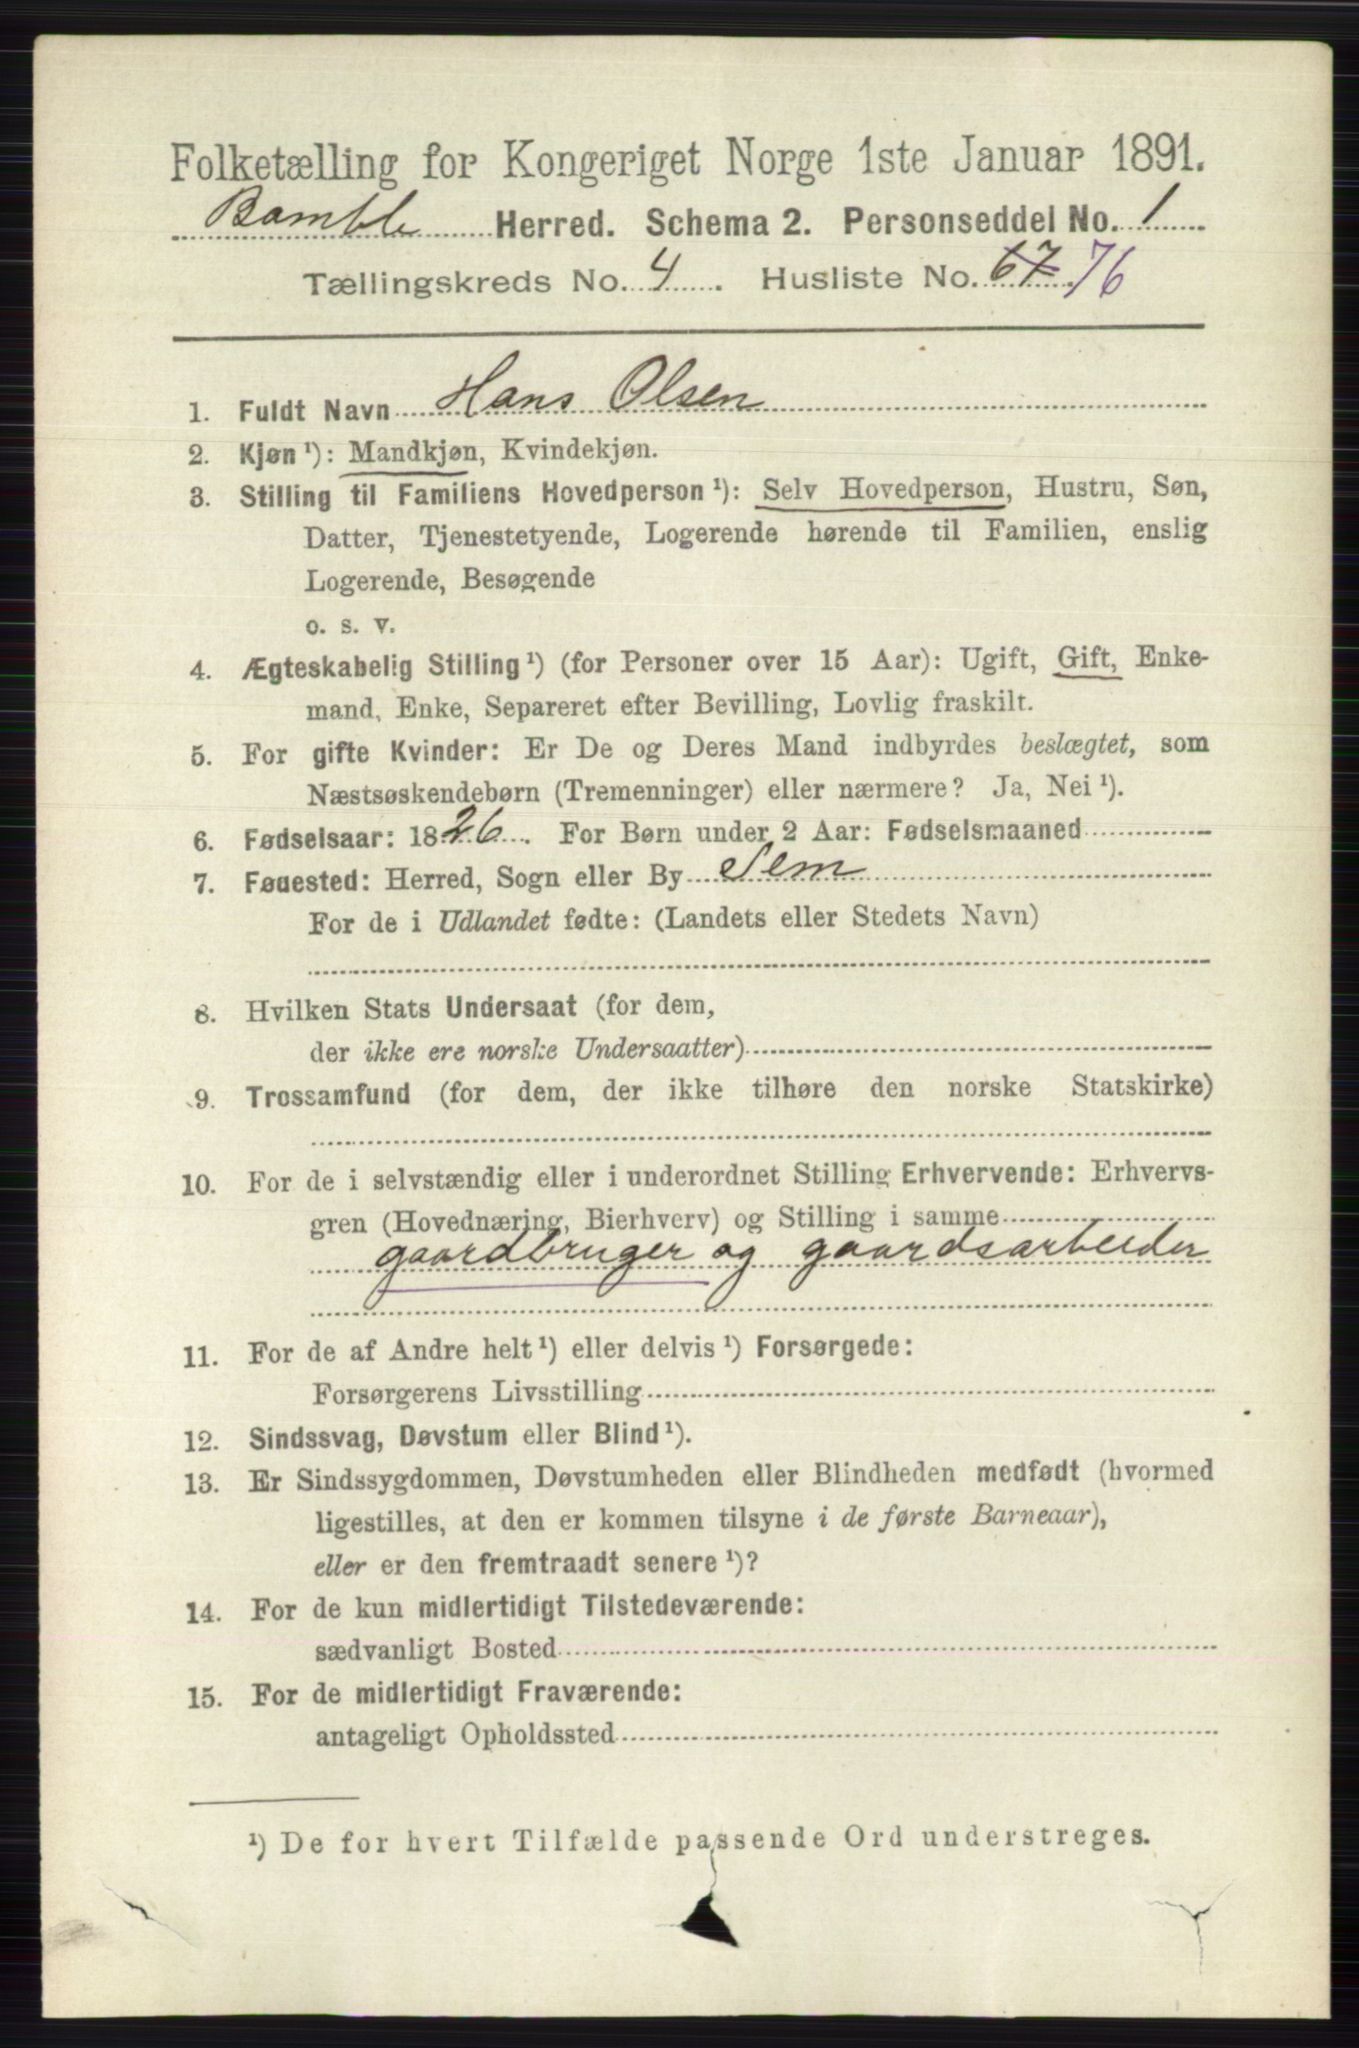 Folketælling for Kongeriget Norge 1ste Januar 1891.
Bamble Herred. Schema 2. Personseddel No. 1
Tællingskreds No. 4. Husliste No. 67 76
1. Fuldt Navn Hans Olsen
2. Kjøn ¹): Mandkjøn, Kvindekjøn.
3. Stilling til Familiens Hovedperson ¹): Selv Hovedperson, Hustru, Søn,
Datter, Tjenestetyende, Logerende hørende til Familien, enslig
Logerende, Besøgende
o. s. v.
4. Ægteskabelig Stilling ¹) (for Personer over 15 Aar): Ugift, Gift, Enke-
mand, Enke, Separeret efter Bevilling, Lovlig fraskilt.
5. For gifte Kvinder: Er De og Deres Mand indbyrdes beslægtet, som
Næstsøskendebørn (Tremenninger) eller nærmere? Ja, Nei ¹).
6. Fødselsaar: 1826. For Børn under 2 Aar: Fødselsmaaned
7. Føuested: Herred, Sogn eller By Sem
For de i Udlandet fødte: (Landets eller Stedets Navn)
8. Hvilken Stats Undersaat (for dem,
der ikke ere norske Undersaatter)
9. Trossamfund (for dem, der ikke tilhøre den norske Statskirke)
10. For de i selvstændig eller i underordnet Stilling Erhvervende: Erhvervs-
gren (Hovednæring, Bierhverv) og Stilling i samme
gaardbruger og gaardsarbeider
11. For de af Andre helt ¹) eller delvis ¹) Forsørgede:
Forsørgerens Livsstilling
12. Sindssvag, Døvstum eller Blind ¹).
13. Er Sindssygdommen, Døvstumheden eller Blindheden medfødt (hvormed
ligestilles, at den er kommen tilsyne i de første Barneaar),
eller er den fremtraadt senere ¹)?
14. For de kun midlertidigt Tilstedeværende:
sædvanligt Bosted
15. For de midlertidigt Fraværende:
antageligt Opholdssted
¹) De for hvert Tilfælde passende Ord understreges.